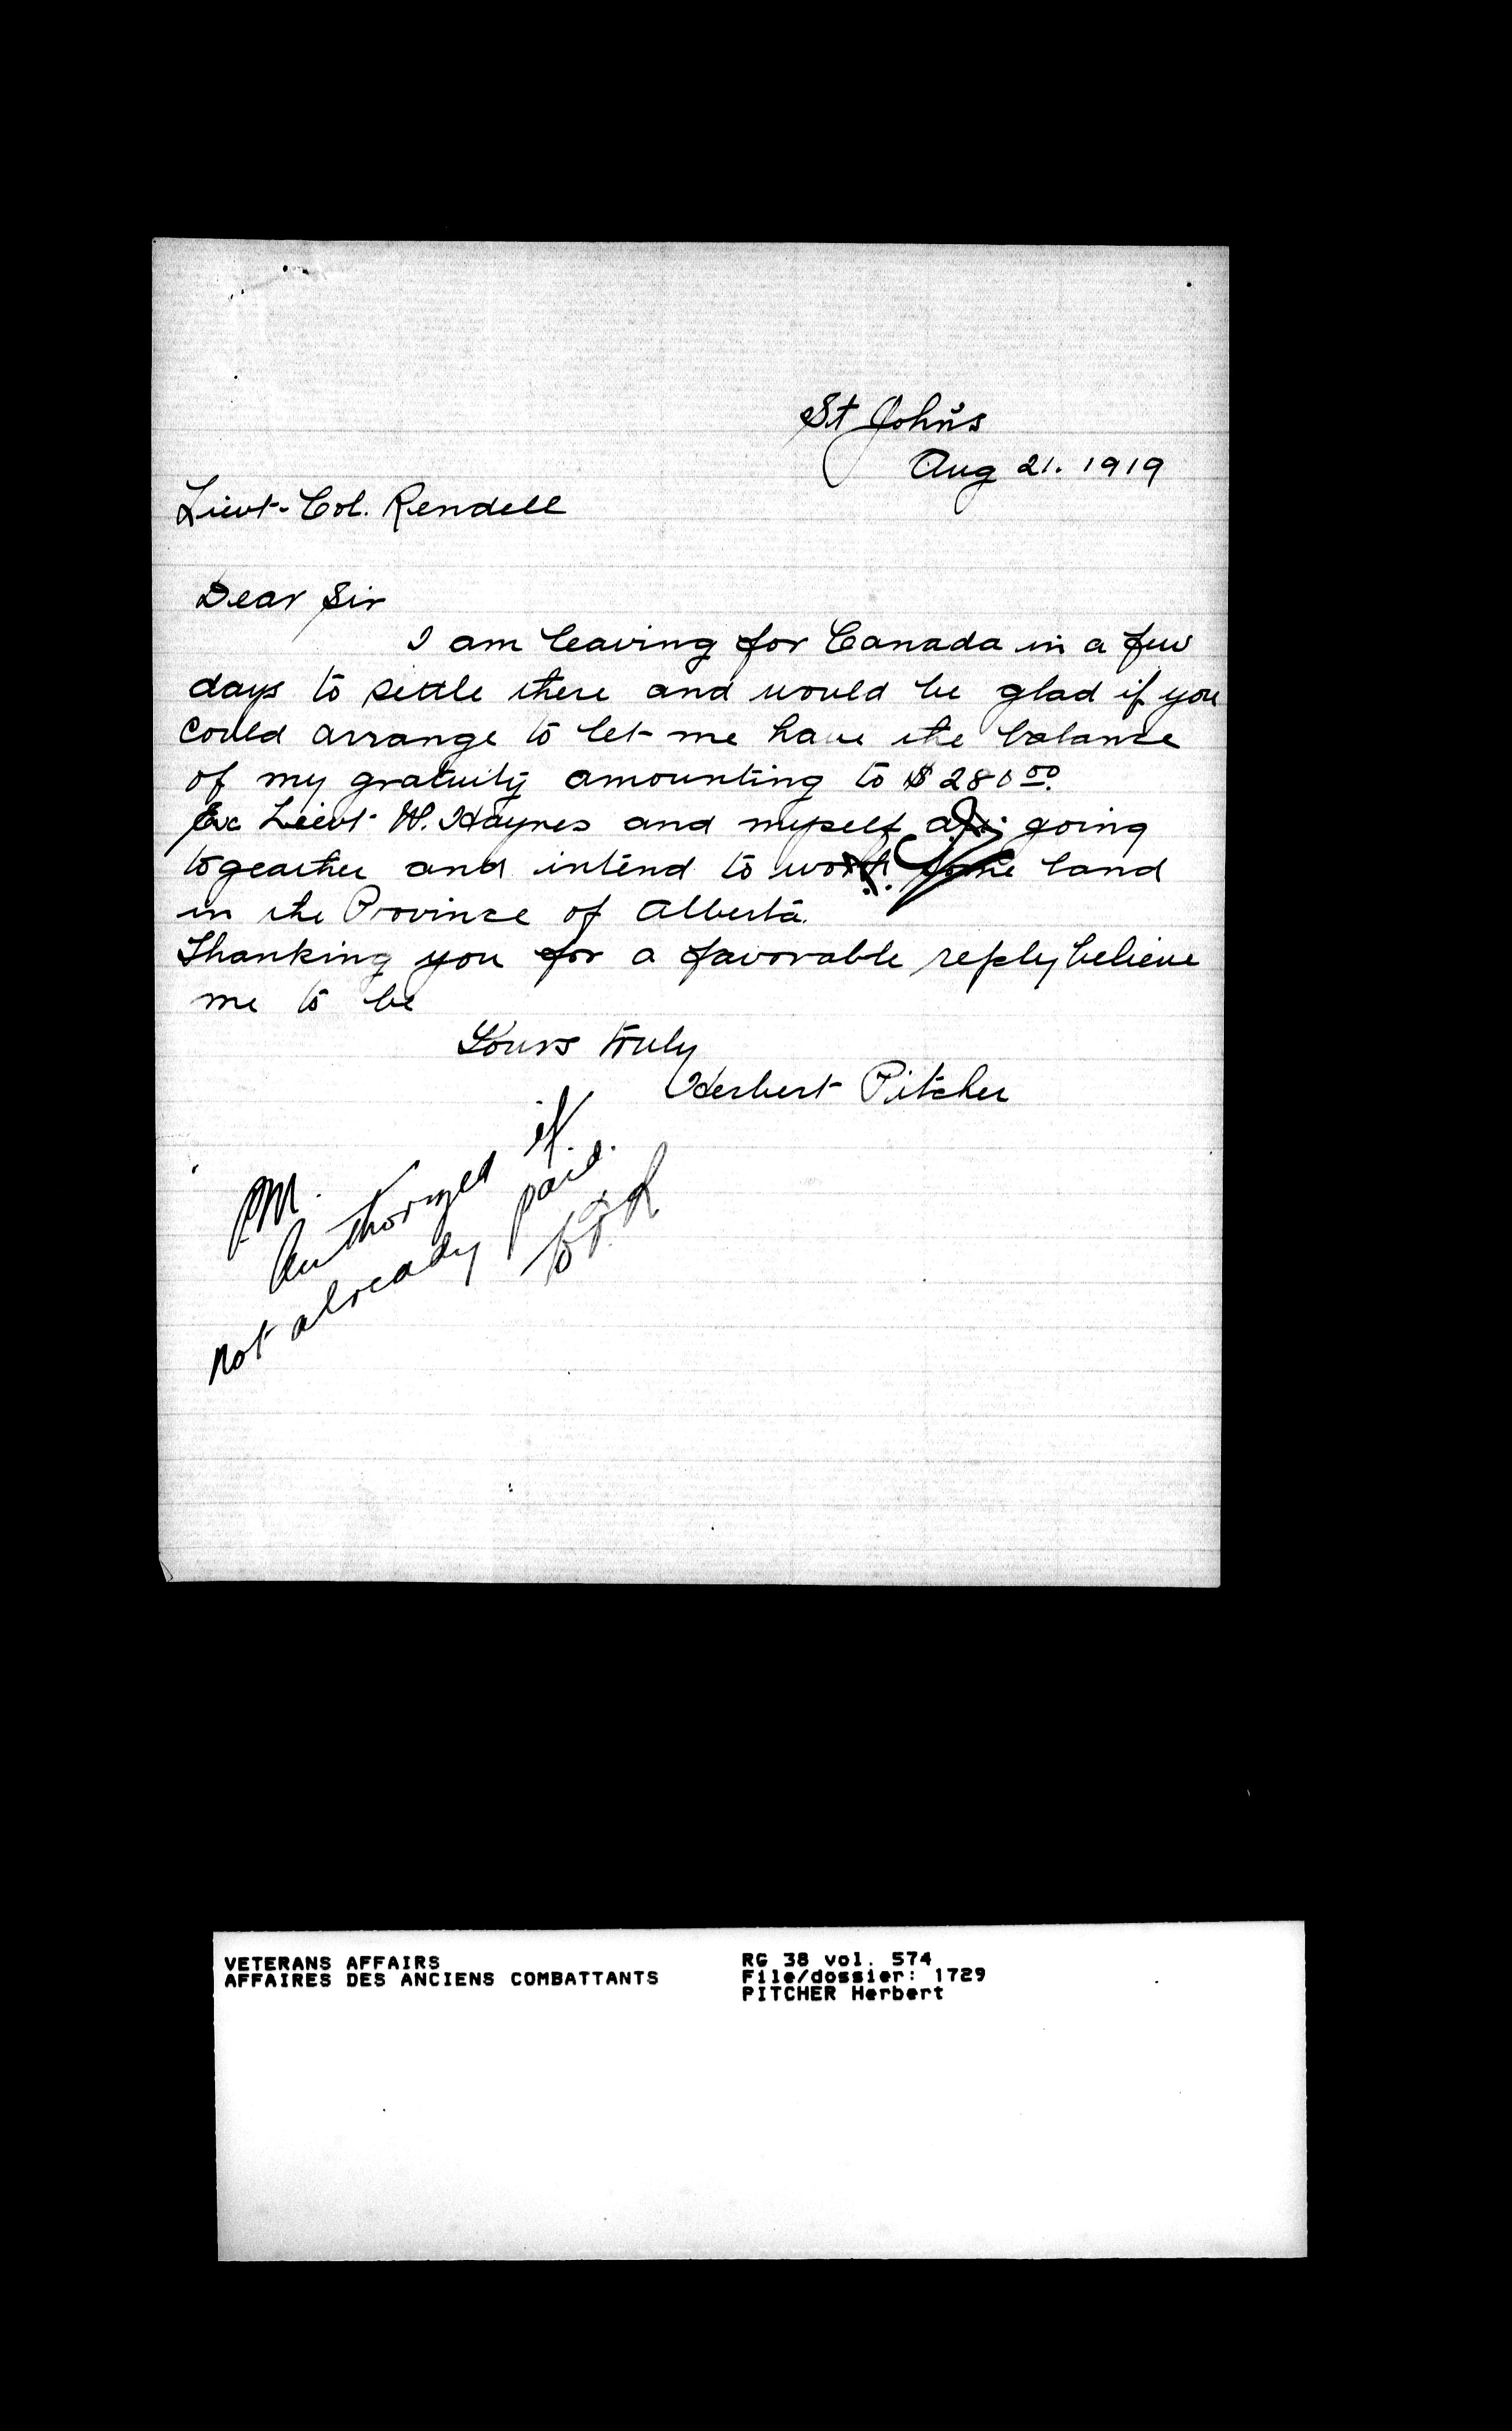 St John's
Aug 21. 1919
Lieut-Col. Rendell
Dear Sir
I am leaving for Canada in a few
days to settle there and would be glad if you
could arrange to let me have the balance
of my gratuity amounting to $280 00
Ex Lieut W. Haynes and myself are going
togeather and intend to work some land
in the Province of Alberta.
Thanking you for a favorable reply believe
me to be
Yours truly
Herbert Pitcher
PM.
Authorized if
not already paid.
VETERANS AFFAIRS
AFFAIRES DES ANCIENS COMBATTANTS
RG 38 vol. 574
File/dossier: 1729
PITCHER Herbert